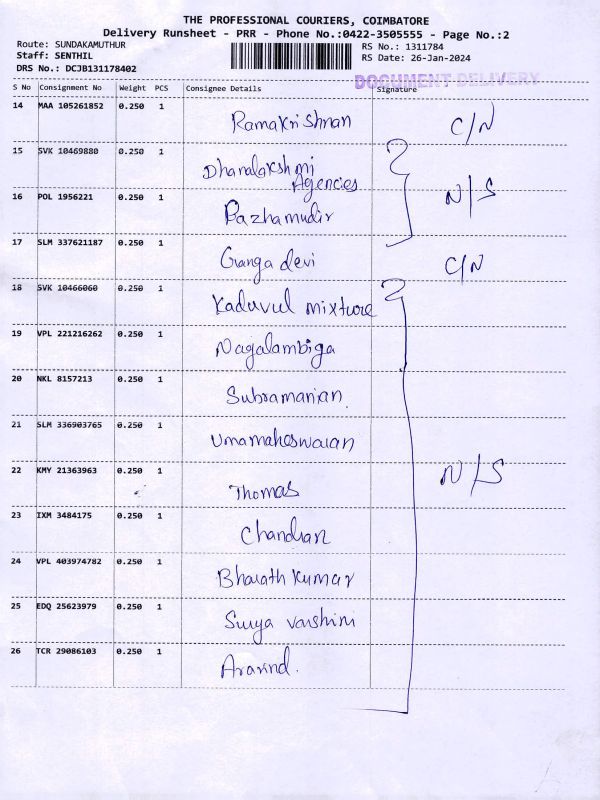 THE PROFESSIONAL COURIERS, COIMBATORE
Delivery Runsheet - PRR - Phone No.:0422-3505555 - Page No.:2
Route: SUNDAKAMUTHUR RS No.: 1311784
Staff: SENTHIL RS Date: 26-Jan-2024
DRS No.: DCJB131178402 DOCUMENT DELIVERY
S No Consignment No Weight PCS Consignee Details Signature
14 MAA 105261852 0.250 1 Ramakrishnan C/N
15 SVK 10469880 0.250 1 Dhanalakshmi
Agencies
16 POL 1956221 0.250 1 Pazhamudir N/S
17 SLM 337621187 0.250 1 Ganga devi C/N
18 SVK 10466060 0.250 1 Kaduvul mixture
19 VPL 221216262 0.250 1 Nagalambiga
20 NKL 8157213 0.250 1 Subramanian
21 SLM 336903765 0.250 1 Umamaheswaran
22 KMY 21363963 0.250 1 Thomas N/S
23 IXM 3484175 0.250 1 Chandran
24 VPL 403974782 0.250 1 Bharath Kumar
25 EDQ 25623979 0.250 1 Surya varshini
26 TCR 29086103 0.250 1 Aravind.